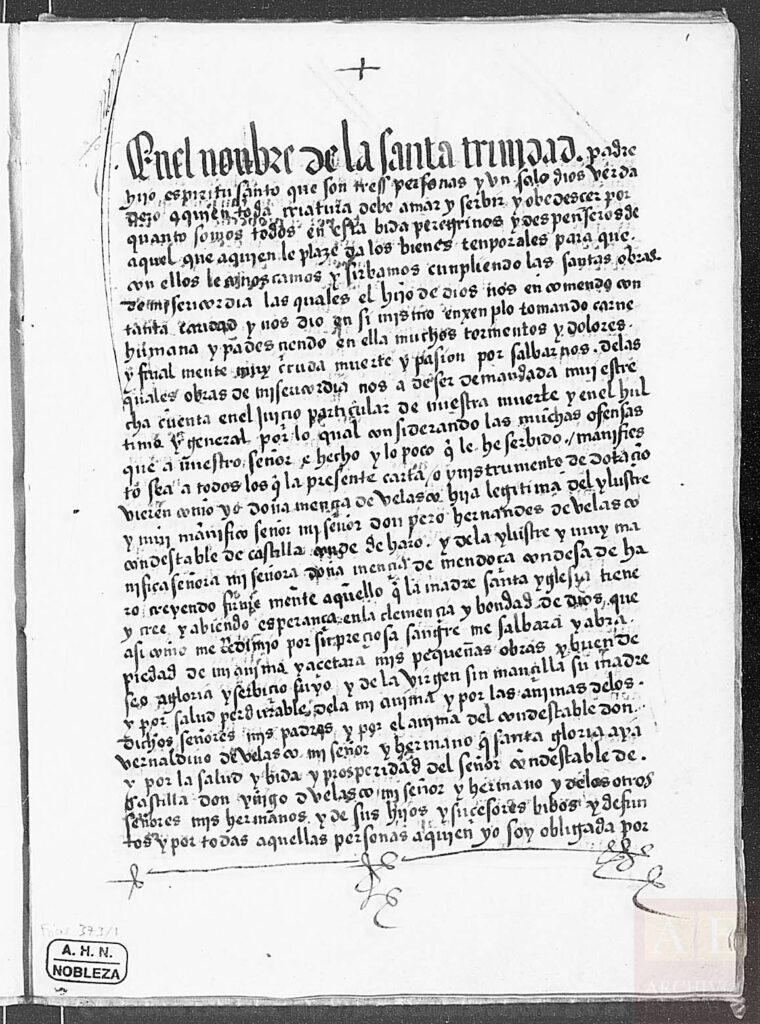 +
En el nonbre de la santa trinidad. padre
hijo espiritu santo que son tress personas y un solo dios verda
dero a quien toda criatura debe amar y serbir y obedescer por
quanto somos todos en esta bida peregrinos y despenseros de
aquel que a quien le plaze da los bienes tenporales para que
con ellos le conoscamos y sirbamos cunpliendo las santas obras
de misericordia las quales el hijo de dios nos encomendo con
tanta caridad y nos dio en si mismo enxenplo tomando carne
humana y padesciendo en ella muchos tormentos y dolores.
y final mente muy cruda muerte y pasion por salbarnos. de las
quales obras de misericordia nos a de ser demandada muy estre
cha cuenta en el juicio particular de nuestra muerte y en el hul
timo y general por lo qual considerando las muchas ofensas
que a nuestro señor e hecho y lo poco q̃ le he serbido / manifies
to sea a todos los q̃ la presente carta / o ynstrumento de dotacio
vieren como yo doña mengia de velasco hija legitima del ylustre
y muy manifico señor mi señor don pero hernandes de velasco
condestable de castilla conde de haro. y de la ylustre y muy ma
nifica señora mi señora doña mencia de mendoça condesa de ha
ro creyendo firme mente aquello q̃ la madre santa yglesia tiene
y cree y abiendo esperança en la clemencia y bondad de dios que
asi como me redimio por su preciosa sangre me salbara y abra.
piedad de mi anima y acetara mis pequeñas obras y buen de
seo a gloria y serbicio suyo y de la virgen sin manzilla su madre
y por salud perdurable de la mi anima y por las animas de los.
dichos señores mis padres y por el anima del condestable don
vernaldino de velasco mi señor y hermano q̃ santa gloria aya
y por la salud y bida y prosperidad del señor condestable de.
castilla don yñigo d velasco mi señor y hermano y de los otros
señores mis hermanos y de sus hijos y sucesores bibos y defun
tos y por todas aquellas personas a quien yo soy obligada por
373/1
A. H. N.
NOBLEZA